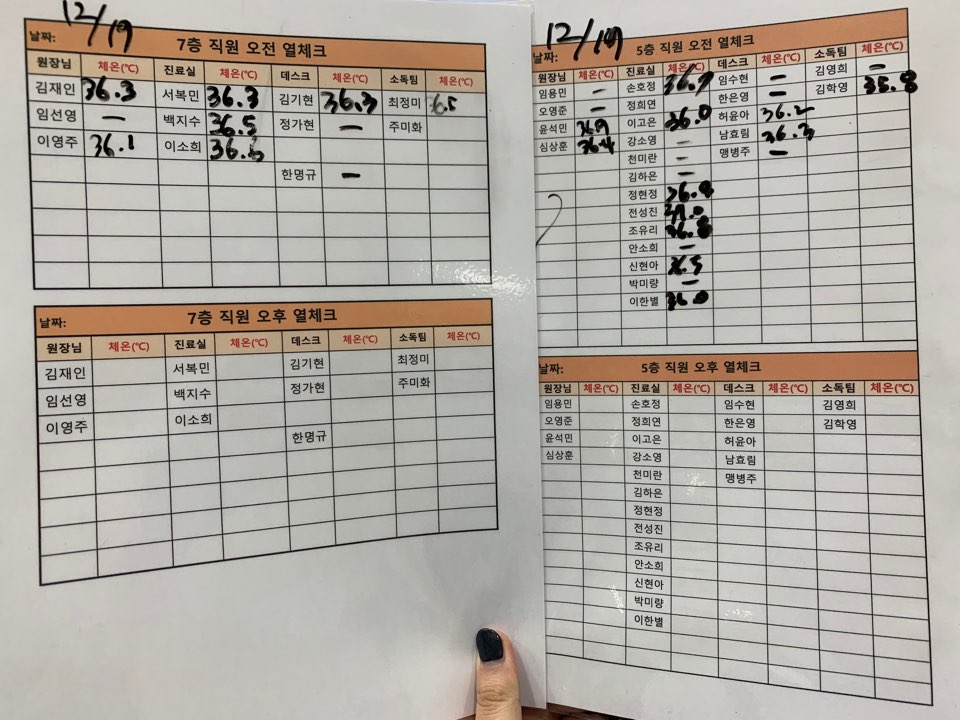 12/19
날짜: 7층 직원 오전 열체크
원장님 체온(℃) 진료실 체온(℃) 데스크 체온(℃) 소독팀 체온(℃)
김재인 36.3 서복민 36.3 김기현 36.3 최정미
임선영 — 백지수 36.5 정가현 — 주미화
이영주 36.1 이소희
한명규 —
날짜: 7층 직원 오후 열체크
원장님 체온(℃) 진료실 체온(℃) 데스크 체온(℃) 소독팀 체온(℃)
김재인 서복민 김기현 최정미
임선영 백지수 정가현 주미화
이영주 이소희
한명규
12/19
날짜: 5층 직원 오전 열체크
원장님 체온(℃) 진료실 체온(℃) 데스크 체온(℃) 소독팀 체온(℃)
임용민 — 손호정 36.7 임수현 — 김영희 —
오영준 — 정희연 한은영 — 김학영 35.8
윤석민 36.9 이고은 36.0 허윤아 36.2
심상훈 36.4 강소영 — 남효림 36.3
천미란 — 맹병주 —
김하은 —
정현정
전성진
조유리 36.8
안소희 —
신현아 36.5
박미량 —
이한별 36.0
날짜: 5층 직원 오후 열체크
원장님 체온(℃) 진료실 체온(℃) 데스크 체온(℃) 소독팀 체온(℃)
임용민 손호정 임수현 김영희
오영준 정희연 한은영 김학영
윤석민 이고은 허윤아
심상훈 강소영 남효림
천미란 맹병주
김하은
정현정
전성진
조유리
안소희
신현아
박미량
이한별